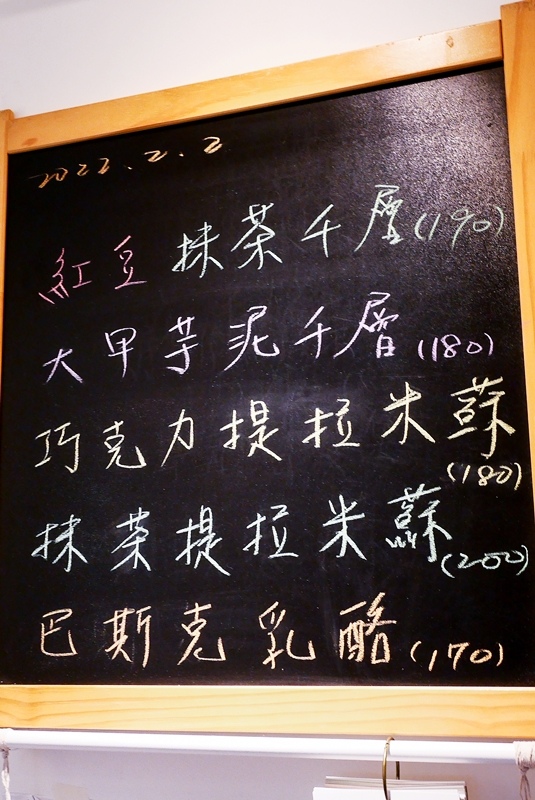 2022.2.2
紅豆抹茶千層(190)
大甲芋泥千層(180)
巧克力提拉米蘇
(180)
抹茶提拉米蘇(200)
巴斯克乳酪(170)